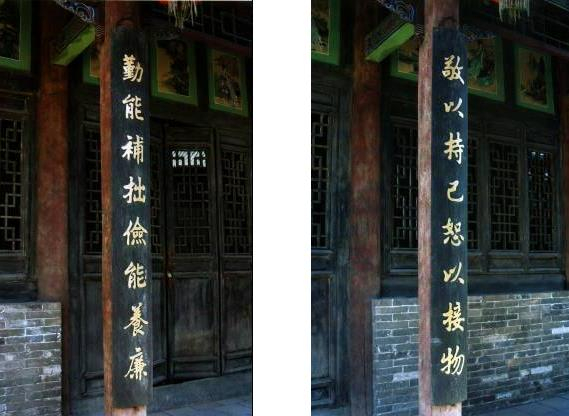 勤能補拙儉能養廉
敬以持己恕以接物